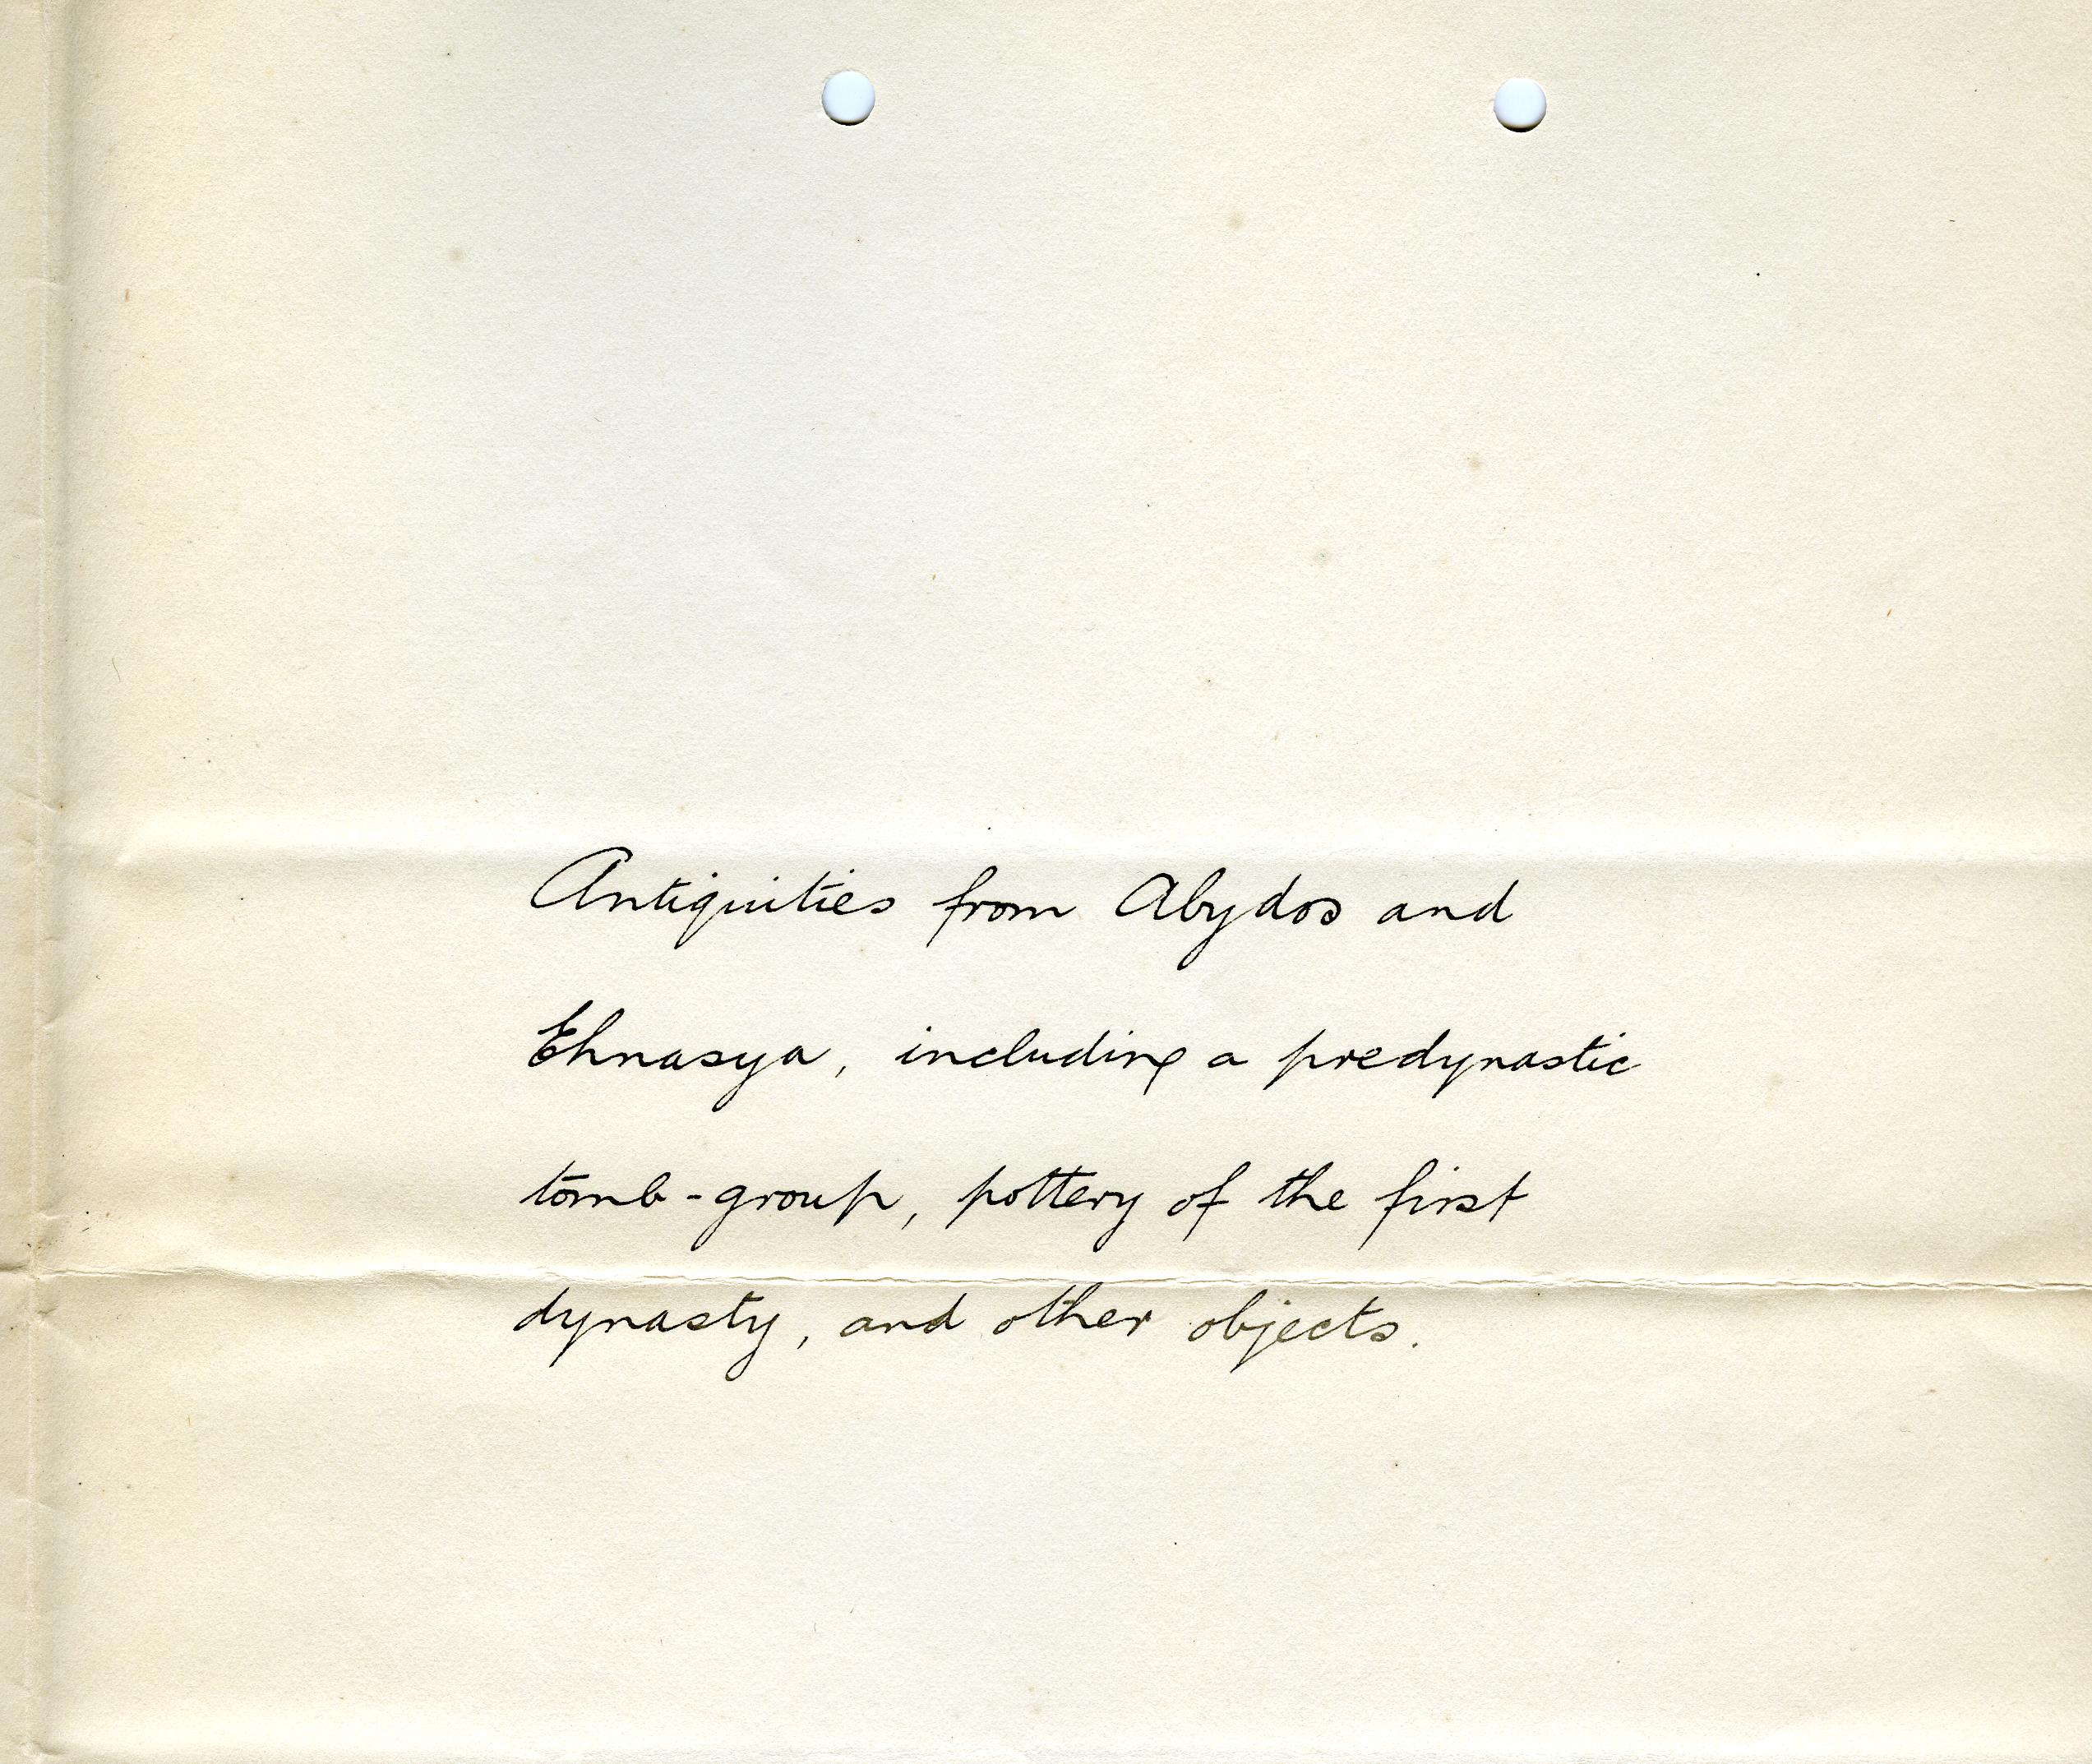 Antiquities from Abydos and
Ehnasya, including a predynastic
tomb-group, pottery of the first
dynasty, and other objects.